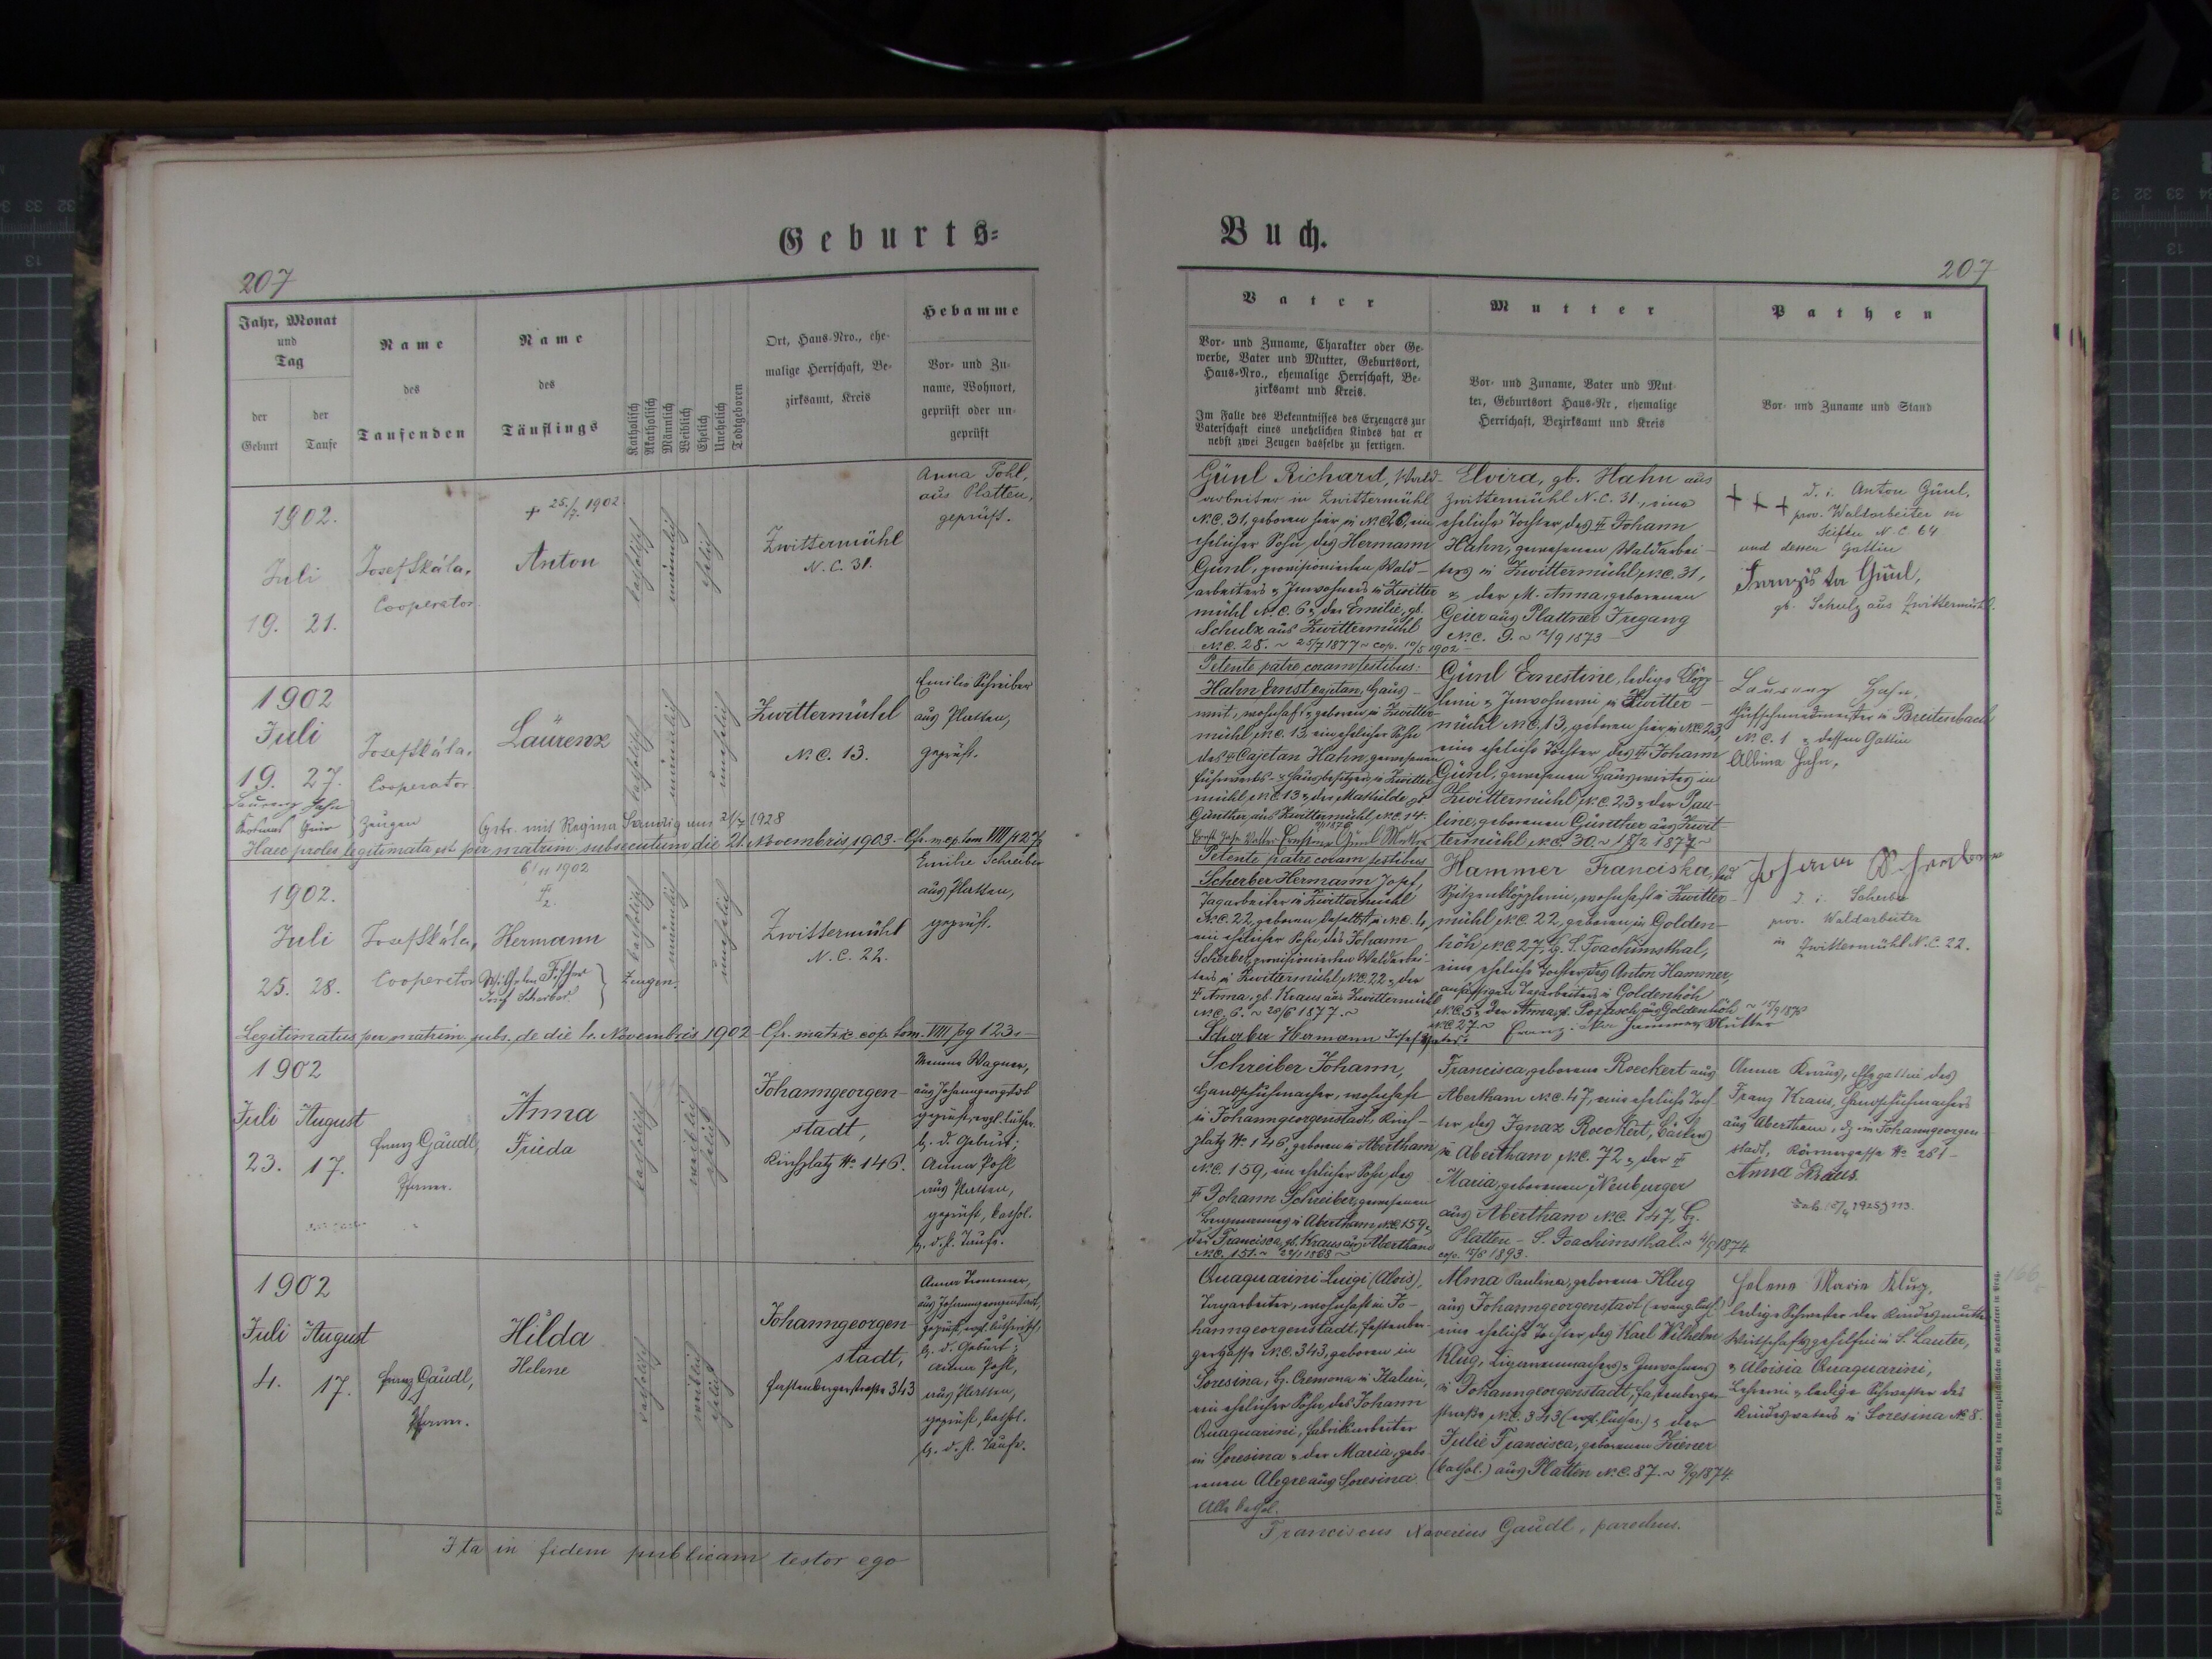 Geburts=
207
Jahr, Monat
und
Tag
der
Geburt
der
Taufe
Name
des
Taufenden
Name
des
Täuflings
Katholisch
Akatholisch
Männlich
Weiblich
Ehelich
Unehelich
Todtgeboren
Ort, Haus-Nro., ehe-
malige Herrschaft, Be-
zirksamt, Kreis
Hebamme
Vor- und Zu-
name, Wohnort,
geprüft oder un-
geprüft
1902.
Juli
19. 21.
Josef Skála,
Cooperator.
+ 25./7. 1902
Anton
katholisch
männlich
ehelich
Zwittermühl
N. C. 31.
Anna Pohl,
aus Platten,
geprüft.
1902
Juli
19. 27.
Josef Skála,
Cooperator
Laurenz
katholisch
männlich
unehelich
Zwittermühl
N. C. 13.
Emilie Schreiber
aus Platten,
geprüft.
Laurenz Hahn
Zeugen
Getr. mit Regina
1928
Haec proles legitimata est per matrim. subsecutum die 21. Novembris 1903.
6/11 1902
1902.
Juli
25. 28.
Josef Skála,
Cooperator
Hermann
Wilhelm Fischer
Josef Scherber
Zeugen.
katholisch
männlich
unehelich
Zwittermühl
N. C. 22.
Emilie Schreiber
aus Platten,
geprüft.
Legitimatus per matrim. subs. de die 4. Novembris 1902 - Cfr. matric. cop. tom. VIII pg 123.
1902
Juli August
23. 17.
Franz Gaudl,
Pfarrer.
Anna
Frieda
katholisch
weiblich
ehelich
Johanngeorgen-
stadt,
No 146.
Wagner,
aus Johanngeorgstdt
geprüft, evgl. luther.
b. d. Geburt;
Anna Pohl
aus Platten,
geprüft, kathol.
b. d. h. Taufe.
1902
Juli August
4. 17.
Franz Gaudl,
Pfarrer.
Hilda
Helene
katholisch
weiblich
ehelich
Johanngeorgen-
stadt,
343
Anna
aus Johanngeorgenstadt,
geprüft, evgl. lutherisch,
b. d. Geburt;
Anna Pohl,
aus Platten,
geprüft, kathol.
b. d. h. Taufe.
Ita in fidem publicam testor ego
Buch.
207
Vater
Vor- und Zuname, Charakter oder Ge-
werbe, Vater und Mutter, Geburtsort,
Haus-Nro., ehemalige Herrschaft, Be-
zirksamt und Kreis.
Im Falle des Bekenntnisses des Erzeugers zur
Vaterschaft eines unehelichen Kindes hat er
nebst zwei Zeugen dasselbe zu fertigen.
Mutter
Vor- und Zuname, Vater und Mut-
ter, Geburtsort Haus-Nr., ehemalige
Herrschaft, Bezirksamt und Kreis
Pathen
Vor- und Zuname und Stand
Günl Richard, Wald-
arbeiter in Zwittermühl
N. C. 31, geboren hier in N. C. 26, ein
ehelicher Sohn des Hermann
Günl, provisionierten Wald-
arbeiters u. Inwohners in Zwitter-
mühl N. C. 6 u. der Emilie, gb.
Schulz aus Zwittermühl
N. C. 28. ~ 25/7 1877 ~ cop. 10/5 1902
Elvira, gb. Hahn aus
Zwittermühl N. C. 31, eine
eheliche Tochter des + Johann
Hahn, gewesenen Waldarbei-
ters in Zwittermühl N. C. 31,
u. der M. Anna, geborenen
Geier aus Plattner Irrgang
N. C. 9. ~ 12/9 1873
+ + +
d. i. Anton Günl,
prov. Waldarbeiter in
Seifen N. C. 64
und dessen Gattin
Franziska Günl,
gb. Schulz aus Zwittermühl.
Petente patre coram testibus:
Hahn Ernst Cajetan, Haus-
wirt, wohnhaft u. geboren in Zwitter-
mühl N. C. 13, ein ehelicher Sohn
des + Cajetan Hahn, gewesenen
Fuhrwerks- u. Hausbesitzers in Zwitter-
mühl N. C. 13 u. der Mathilde, gb.
Günther aus Zwittermühl N. C. 14.
Ernst Hahn Vater Ernestine Günl Mutter
Günl Ernestine, ledige Klöpp-
lerin u. Inwohnerin in Zwitter-
mühl N. C. 13, geboren hier in N. C. 23,
eine eheliche Tochter des + Johann
Günl, gewesenen Hauswirtes in
Zwittermühl N. C. 23 u. der Pau-
line, geborenen Günther aus Zwit-
termühl N. C. 30. ~ 18/2 1877 ~
Laurenz Hahn,
Hufschmiedmeister in Breitenbach
N. C. 1 u. dessen Gattin
Albina Hahn.
Petente patre coram testibus
Scherber Hermann Josef,
Tagarbeiter in Zwittermühl
N. C. 22, geboren daselbst in N. C. 4,
ein ehelicher Sohn des Johann
Scherber, provisionierten Waldarbei-
ters in Zwittermühl N. C. 22 u. der
+ Anna, gb. Kraus aus Zwittermühl
N. C. 6. ~ 20/6 1877. ~
Scherber Hermann Josef Vater.
Hammer Franciska, led.
Spitzenklöpplerin, wohnhaft in Zwitter-
mühl N. C. 22, geboren in Golden-
höh N. C. 27, B. S. Joachimsthal,
eine eheliche Tochter des Anton Hammer,
ansässigen Tagarbeiters in Goldenhöh
N. C. 5 u. der Anna, gb. aus Goldenhöh
N. C. 27. ~
Hammer Mutter
d. i. Scherber
prov. Waldarbeiter
in Zwittermühl N. C. 22.
Schreiber Johann,
Handschuhmacher, wohnhaft
in Johanngeorgenstadt,
platz No 146, geboren in Abertham
N. C. 159, ein ehelicher Sohn des
+ Johann Schreiber, gewesenen
Bergmannes in Abertham N. C. 159 u.
der Francisca, gb. Kraus aus Abertham
N. C. 151. ~ 1868 ~
Francisca, geborene Roeckert aus
Abertham N. C. 47, eine eheliche Toch-
ter des Ignaz Roeckert, Bäckers
in Abertham N. C. 72 u. der +
Maria, geborenen Neuburger
aus Abertham N. C. 147, B.
Platten - S. Joachimsthal. ~ 4/9 1874
cop. 1893.
Anna Kraus, Ehegattin des
Franz Kraus, Handschuhmachers
aus Abertham, in Johanngeorgen-
stadt, No 281 -
Anna Kraus.
Quaquarini Luigi (Alois),
Tagarbeiter, wohnhaft in Jo-
hanngeorgenstadt,
N. C. 343, geboren in
Soresina, Bz. Cremona in Italien,
ein ehelicher Sohn des Johann
Quaquarini, Fabriksarbeiter
in Soresina u. der Maria, gebo-
renen Alegre aus Soresina
Alle kathol.
Alma Paulina, geborene Klug
aus Johanngeorgenstadt (evang. luth.)
eine eheliche Tochter des Karl Wilhelm
Klug, u. Inwohners
in Johanngeorgenstadt,
straße N. C. 343 (evgl. luther.) u. der
Julie Francisca, geborenen Ziener
(kathol.) aus Platten N. C. 87. ~ 9/9 1874.
Helene Marie Klug,
ledige Schwester der Kindesmutter
Wirtschaftsgehilfin in S. Lauter,
u. Aloisia Quaquarini,
Lehrerin u. ledige Schwester des
Kindesvaters in Soresina N. 8.
166
Franciscus Xaverius Gaudl, parochus.